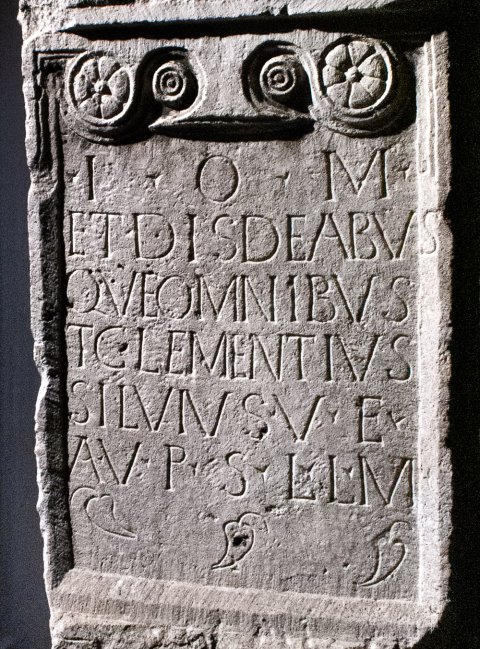 · I · O · M ·
ET DIS DEABVS
QVE OMNIBVS
T CLEMENTIVS
SILVIVS V · E ·
AV · P · S · L · L · M